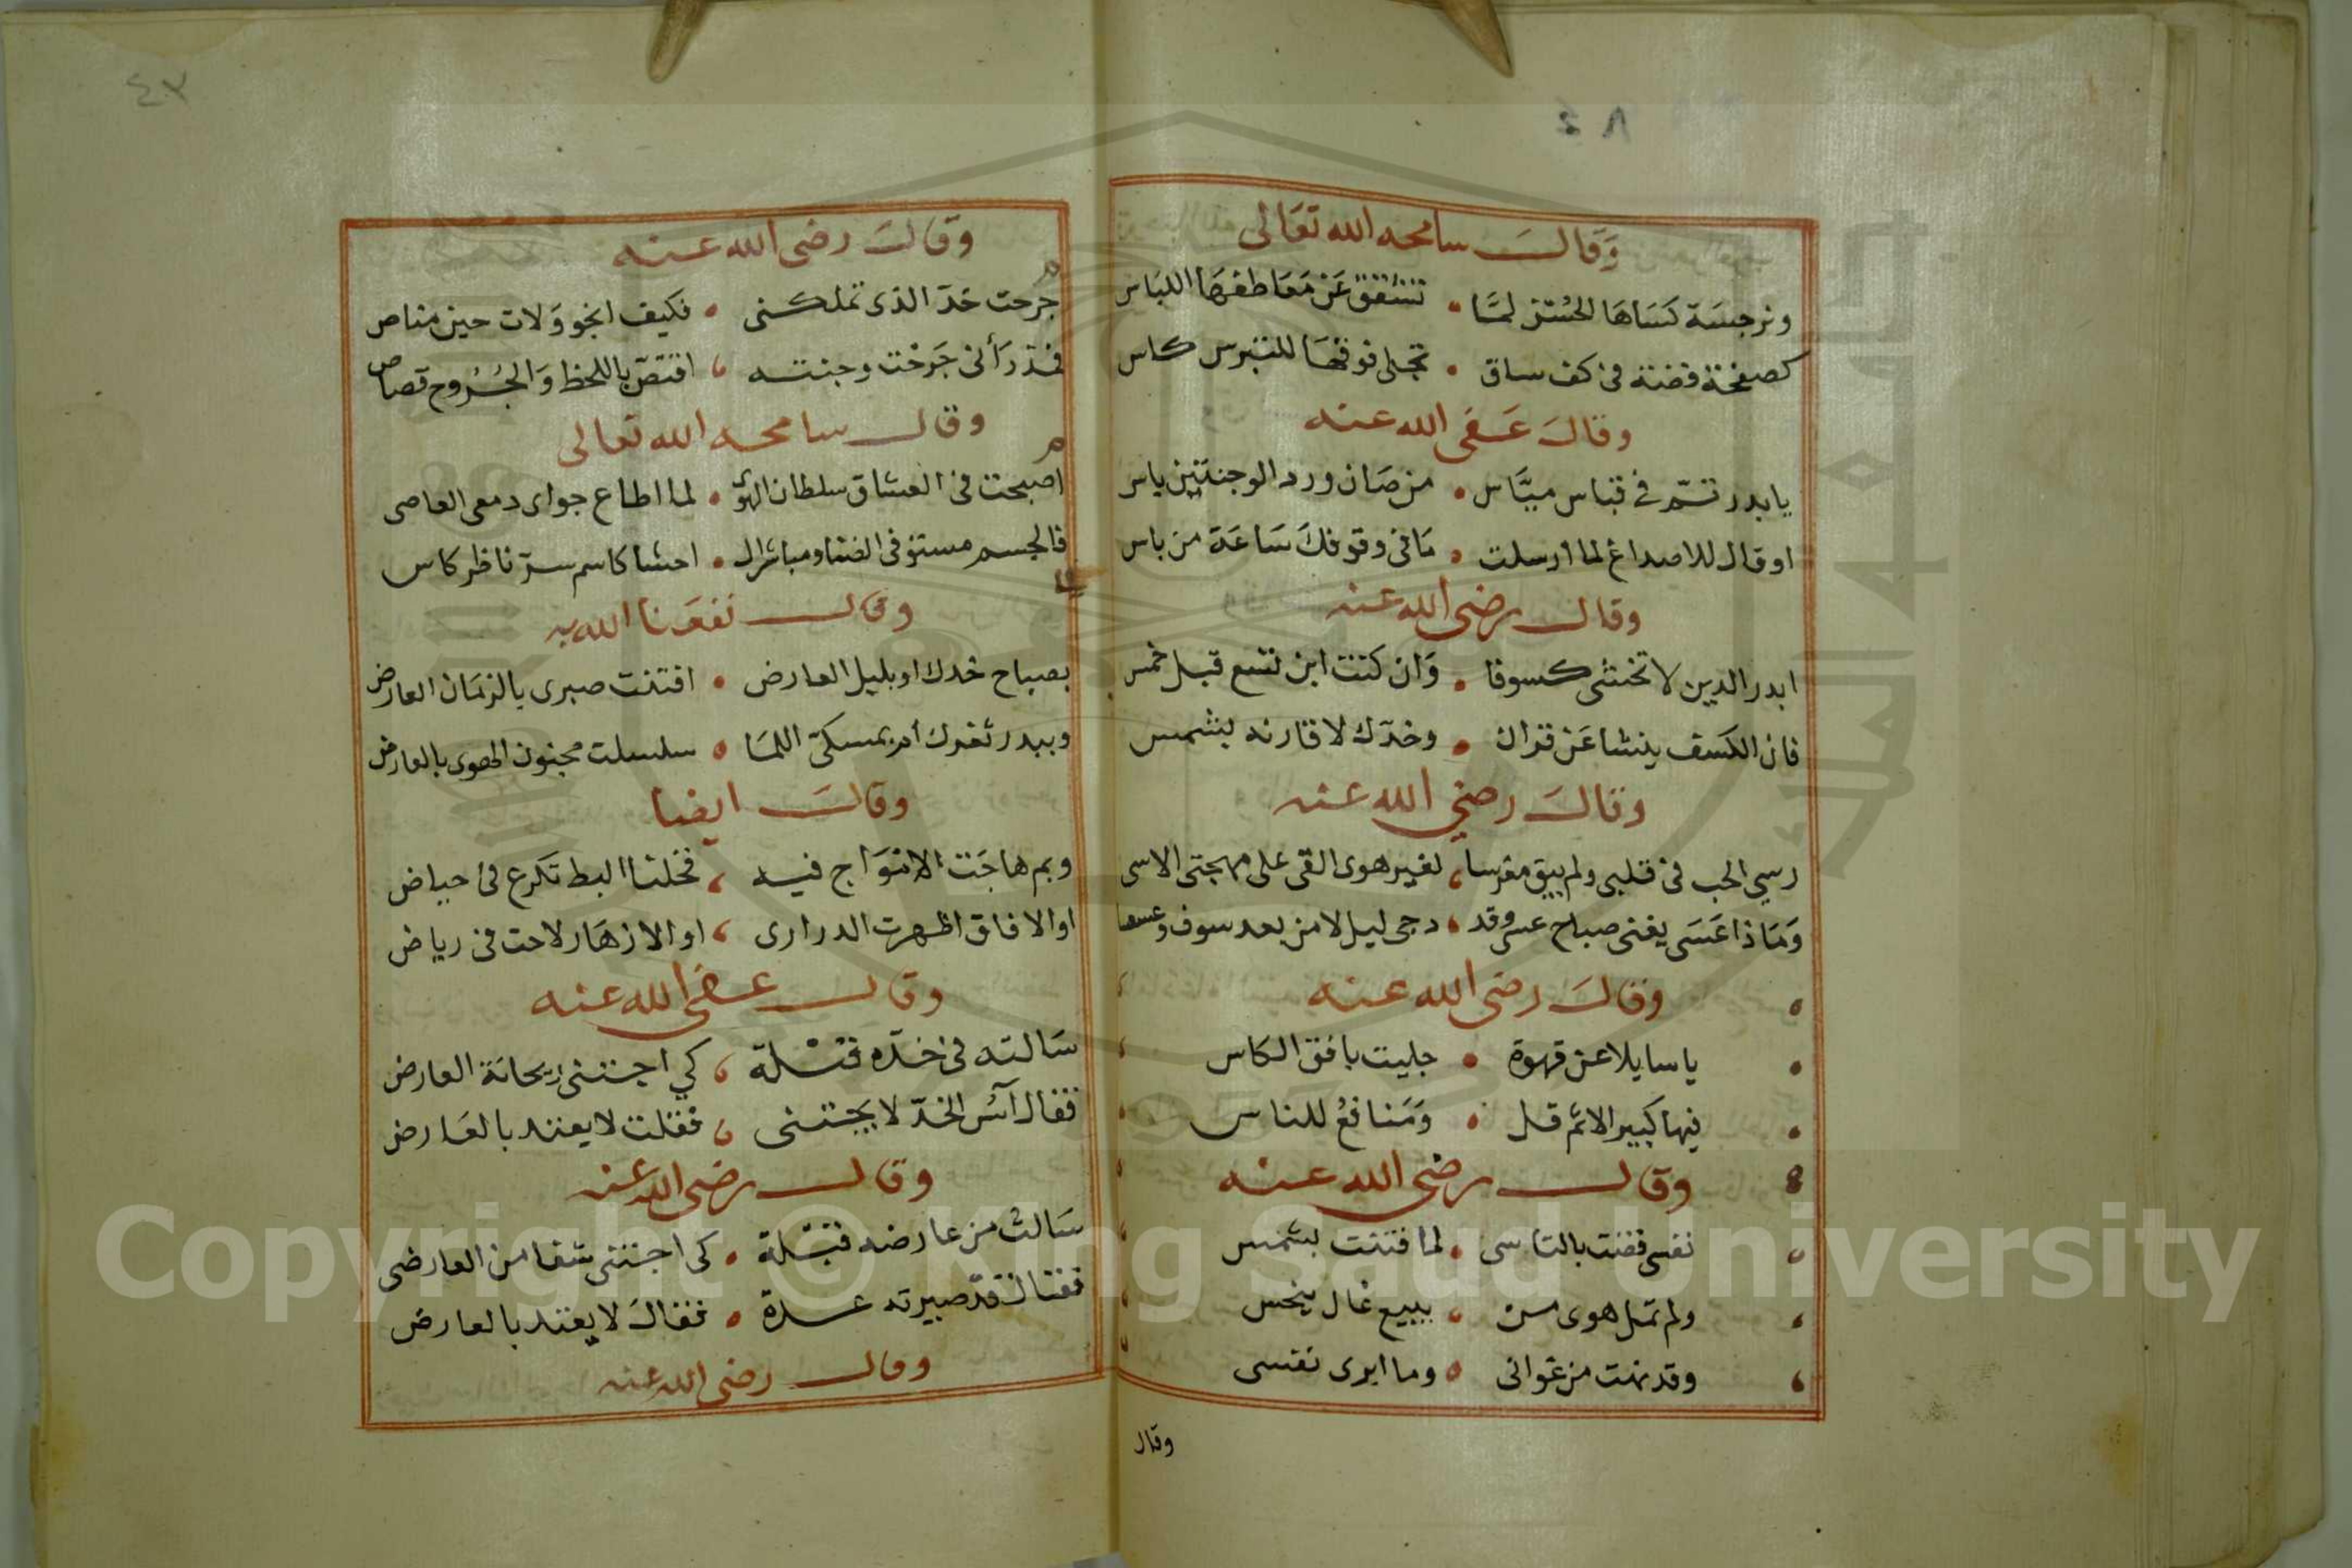 ٤٨
وَقَالَ سامحه الله تعَالى
ونرجسَة كَسَاهَا الحُسن لمَّا • تشقق عَن مَعَاطفهَا اللبَاس
كصفحة فضة في كف ساق • تجلى فوقهَا للتبرس كاس
وقالَ عَفى الله عنه
يا بدر تمّ في قباس ميَّاس • من صَان ورد الوجنتين باس
او قال للاصداغ لما ارسلت • مَا في وقوفكَ سَاعَة من باس
وقال رضى الله عنه
ابدر الدين لا تخشى كسوفا • وَان كنت ابن تسع قبل خمس
فان الكسَف ينشا عَن قران • وخدّك لا قارنه بشمس
وقالَ رضي الله عنه
رسي الحب في قلبي ولم يبق مغرسا، لغير هوى القى على مهجتى الاسى
وَمَاذا عَسَى يغنى صباح عسى وقد • دجى ليل لا من بعد سوف وعسعسا
وقالَ رضى الله عنه
يا سايلا عن قهوة • جليت بافق الكاس
فيها كبير الاثم قل • وَمَنافعُ للناس
وقال رضى الله عنه
نفسى فضنت بالتاسى • لما فتنت بشمس
ولم تمل هوى من • ببيع غال ببخس
وقد نهت من غوانى • وما ابرى نفسى
وقال
٤٣
وقالَ رضى الله عنه
جرحت خدّ الذى تملكنى • فكيف انجو وَلات حين مناص
فمذ رَأنى جَرحْت وجنته • اقتصّ باللحظ وَالجُرُوح قصاص
وقال سامحه الله تعالى
اصبحت في العشاق سلطان الهوى • لما اطاع جواى دمعى العاصى
فالجسم مستوفى الضنا ومباشر ال • احشا كاسم سرّ ناظر كاس
وقال نفعَنا الله به
بصباح خدك او بليل العارض • افتنت صبرى يا لزمَان العارض
وببدر ثغرك ام بمسكىّ اللمَا • سلسلت مجنون الهوى بالعارض
وقالَ ايضا
ويم هاجَت الامْوَاج فيه ، فخلنا البط تكرع فى حياض
او الافاق اظهرت الدرارى ، او الازهَار لاحت فى رياض
وقال عفى الله عنه
سَالته فى خدّه قبْلة ، كي اجتنى ريحانَة العارض
فقال آسُ الخدّ لا يجتنى ، فقلت لا يعتد بالعَارض
وقال رضى الله عنه
سَالت من عارضه قبْلة • كى اجتنى شفا من العارضى
فقال قدّ صيرته عدة • فقالَ لا يعتد بالعارض
وقال رضى الله عنه
Copyright © King Saud University